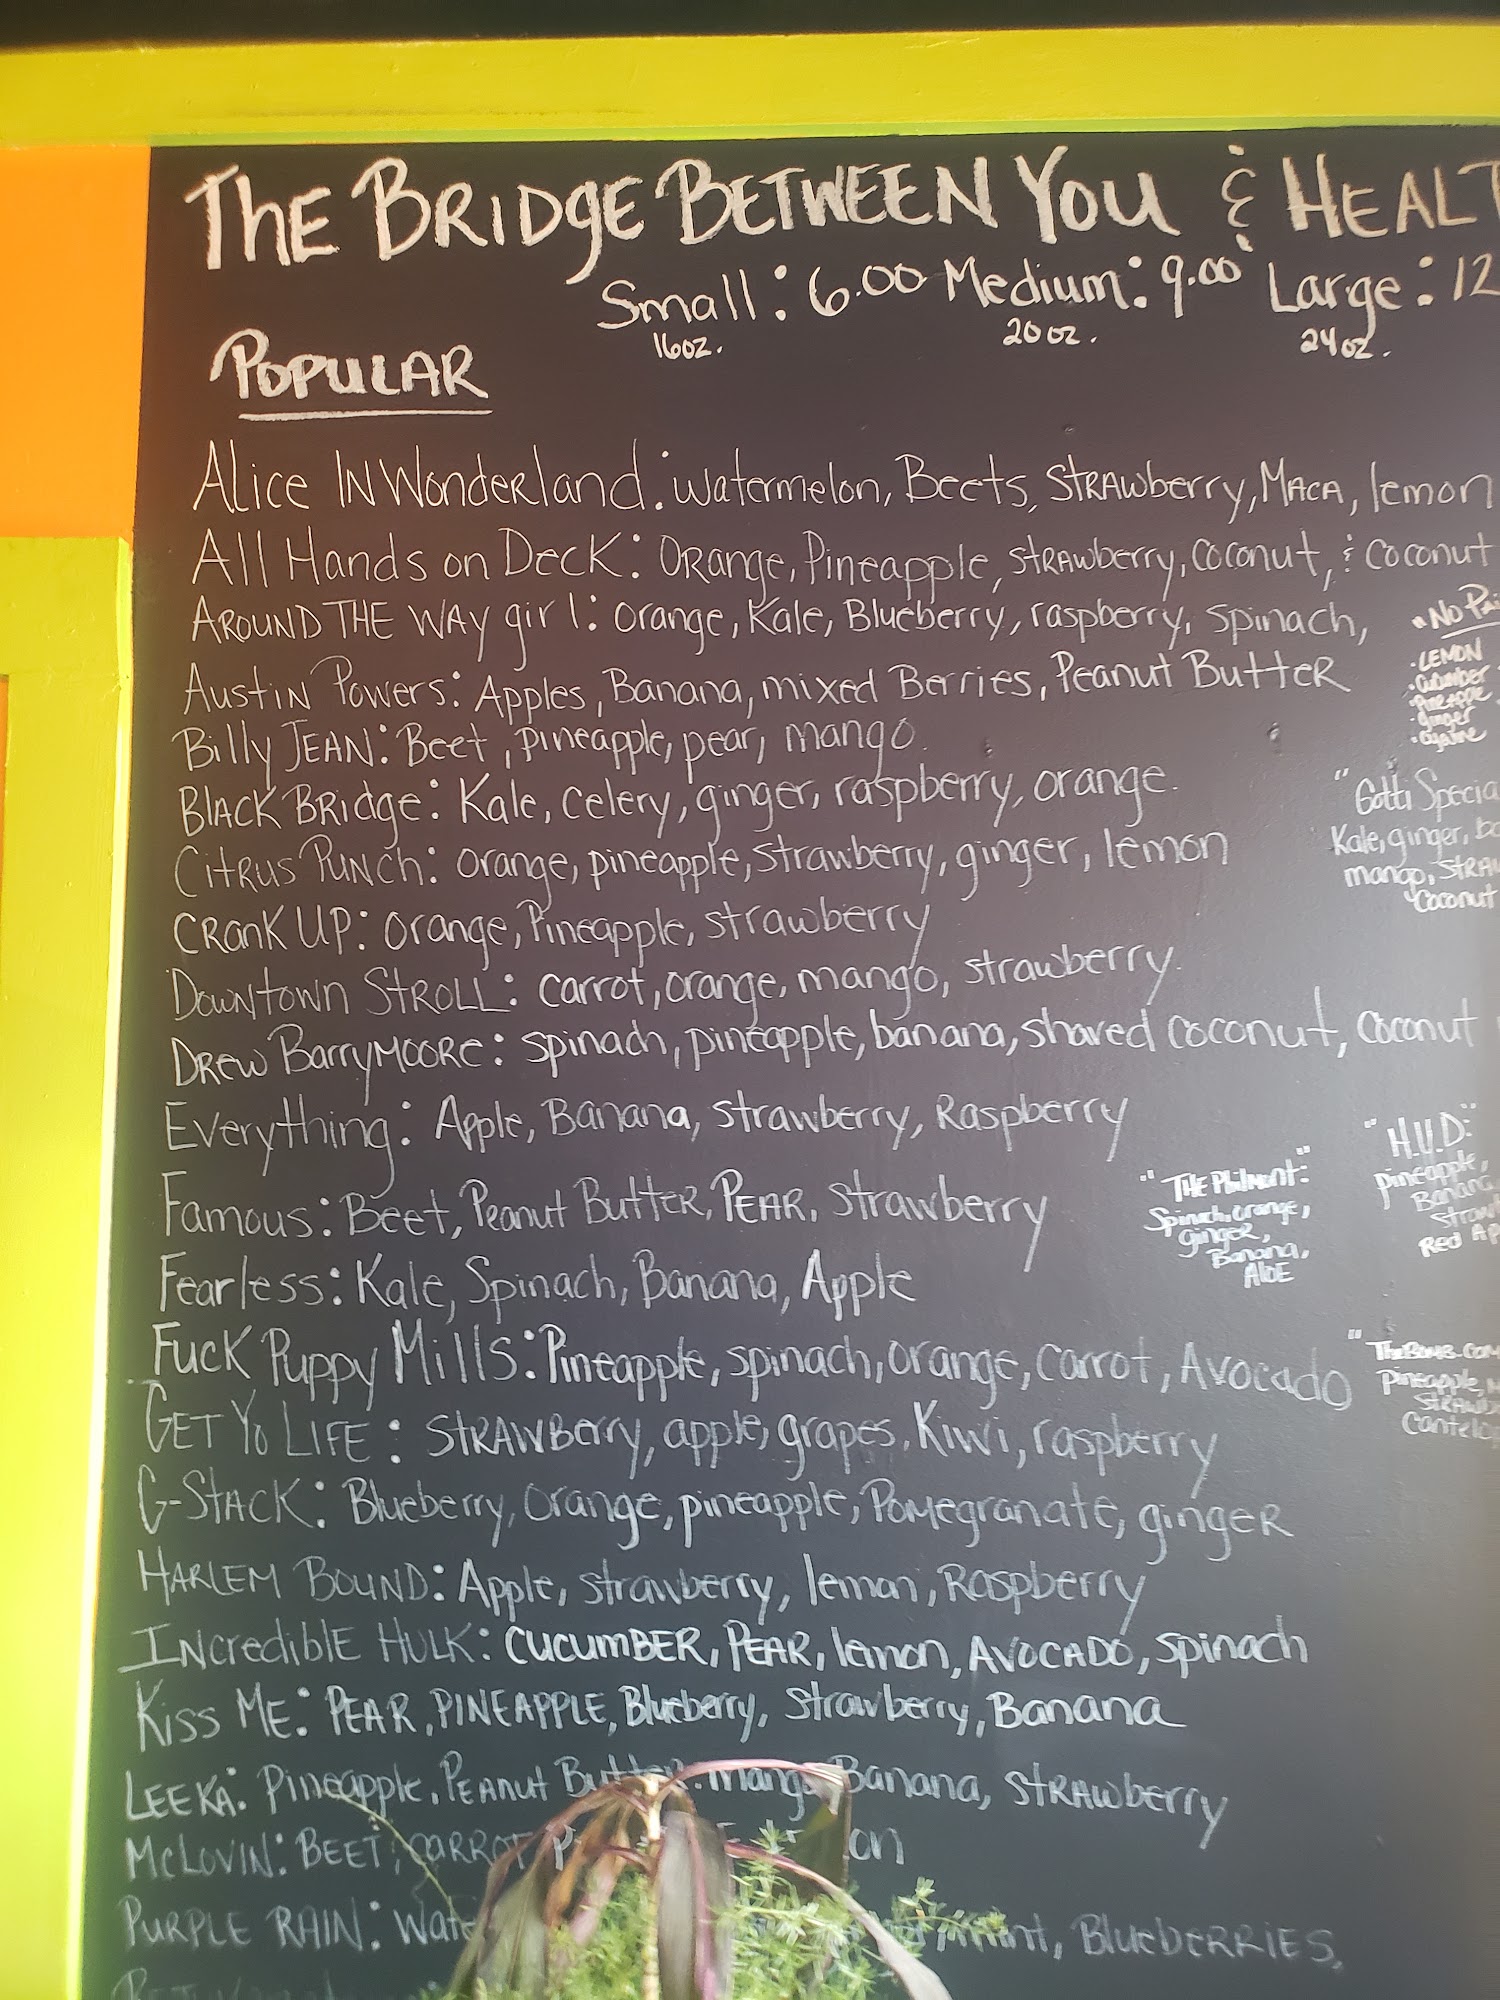 THE BRIDGE BETWEEN YOU & HEALT
Small: 6.00 Medium: 9.00 Large: 12
16oz. 20oz. 24oz.
POPULAR
Alice IN Wonderland: watermelon, Beets, STRAWberry, MACA, lemon
All Hands on Deck: ORange, Pineapple, STRAWberry, coconut, & coconut
AROUND THE WAY girl: orange, Kale, Blueberry, raspberry, spinach,
AUSTIN Powers: Apples, Banana, mixed Berries, Peanut Butter
Billy JEAN: Beet, pineapple, pear, mango.
BLACK BRIDGE: Kale, celery, ginger, raspberry, orange.
CITRUS PUNCH: orange, pineapple, strawberry, ginger, lemon
CRANK UP: orange, Pineapple, strawberry
Downtown STROLL: carrot, orange, mango, strawberry.
DREW BarryMOORE: spinach, pineapple, banana, shaved coconut, coconut
Everything: Apple, Banana, strawberry, Raspberry
Famous: Beet, Peanut Butter, PEAR, strawberry
Fearless: Kale, Spinach, Banana, Apple
FUCK Puppy Mills: Pineapple, spinach, orange, carrot, Avocado
GET YO LIFE: STRAWBErry, apple, grapes, Kiwi, raspberry
G-STACK: Blueberry, orange, pineapple, Pomegranate, ginger
HARLEM BOUND: Apple, strawberry, lemon, Raspberry
INCREDIBLE HULK: CUCUMBER, PEAR, lemon, AVOCADO, spinach
Kiss ME: PEAR, PINEAPPLE, Blueberry, Strawberry, Banana
LEEKA: Pineapple, PEANUT Butter, mango Banana, STRAWberry
McLOVIN: BEET, CARROT P on
PURPLE RAIN: Wate int, BlueBERRIES,
"NO Pai
·LEMON
·Cucumber
·Pineapple
·Ginger
"Gotti Specia
Kale, ginger, ba
mango, STRAW
Coconut
"THE Philmont:"
Spinach, orange,
ginger,
Banana,
AlOE
"H.U.D:"
pineapple,
Banana
Straw
Red Ap
"
pineapple, M
STRAW
Cantelo